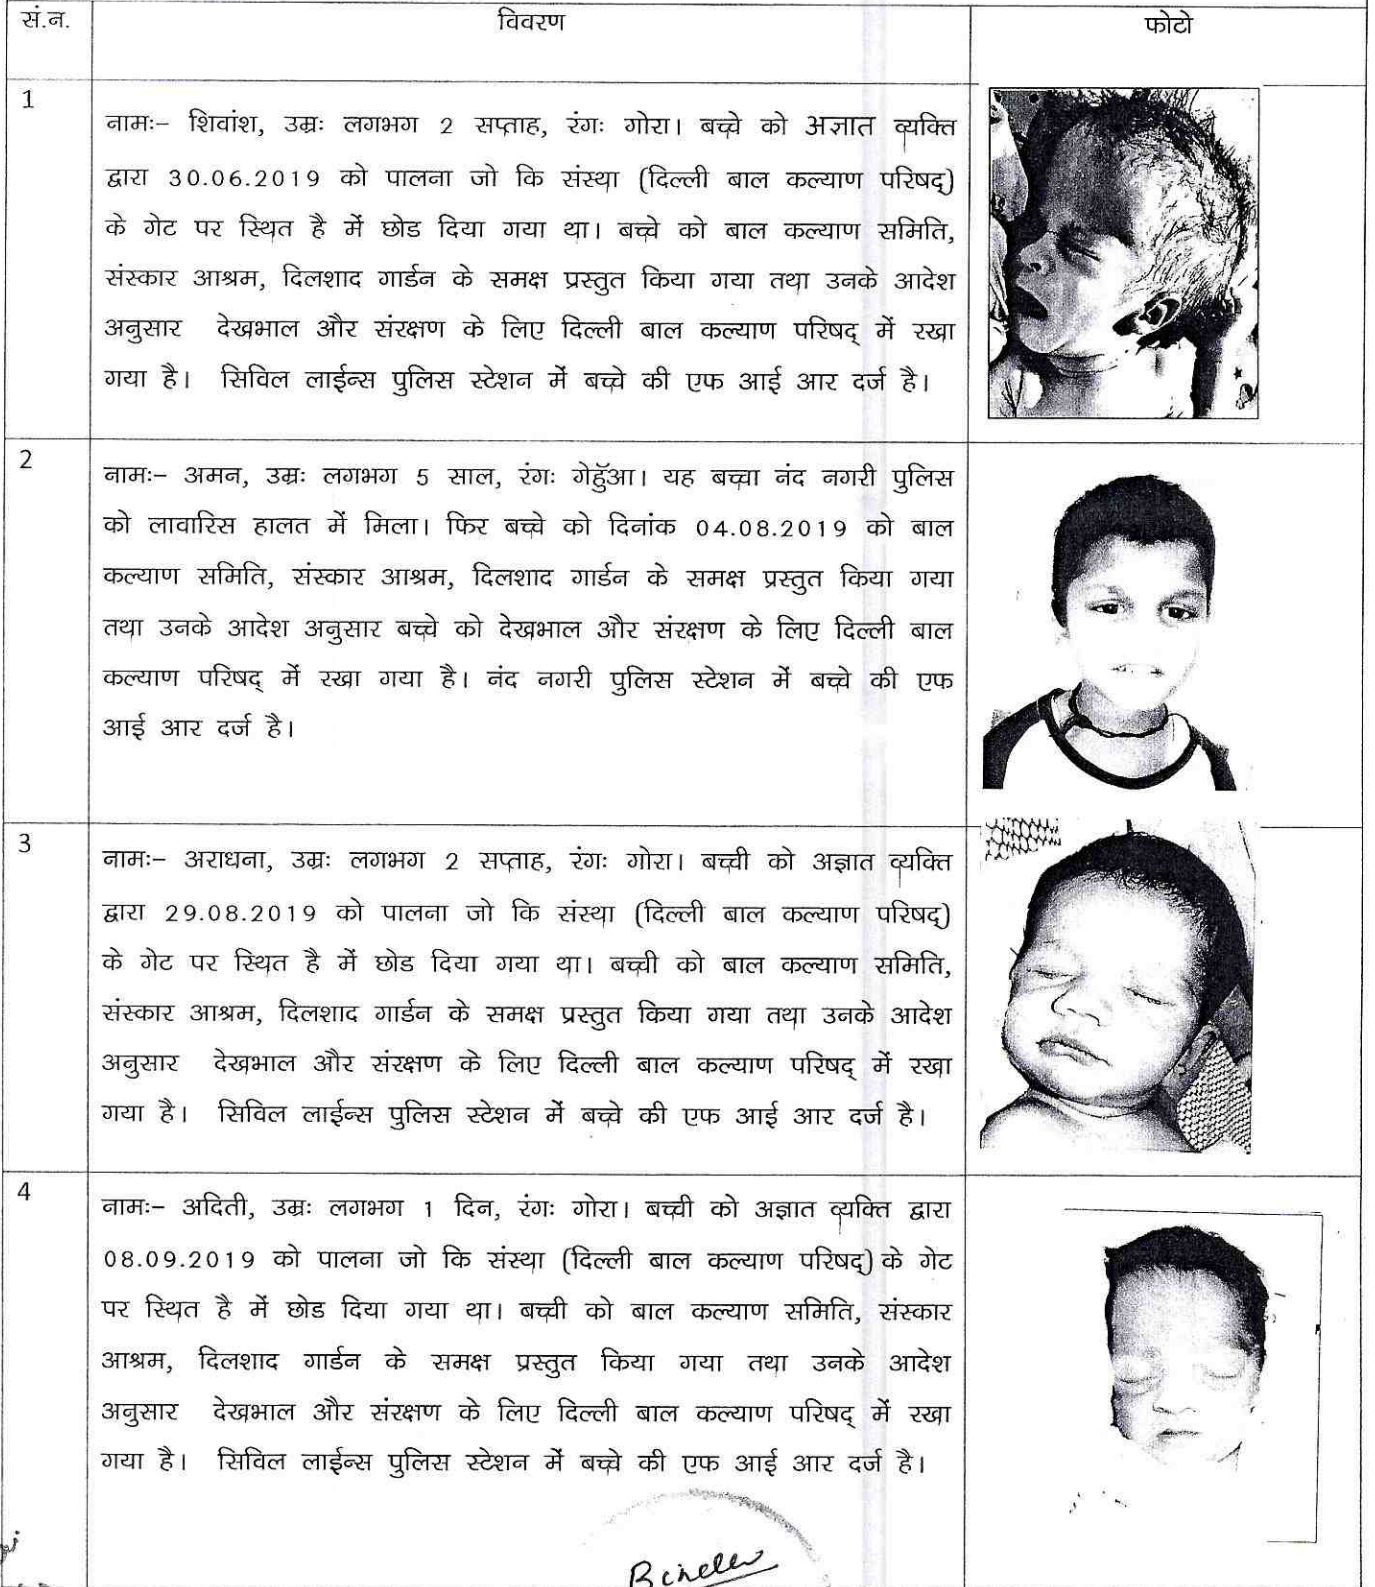 सं.न. विवरण फोटो
1
नामः– शिवांश, उम्रः लगभग 2 सप्ताह, रंगः गोरा। बच्चे को अज्ञात व्यक्ति
द्वारा 30.06.2019 को पालना जो कि संस्था (दिल्ली बाल कल्याण परिषद्)
के गेट पर स्थित है में छोड दिया गया था। बच्चे को बाल कल्याण समिति,
संस्कार आश्रम, दिलशाद गार्डन के समक्ष प्रस्तुत किया गया तथा उनके आदेश
अनुसार देखभाल और संरक्षण के लिए दिल्ली बाल कल्याण परिषद् में रखा
गया है। सिविल लाईन्स पुलिस स्टेशन में बच्चे की एफ आई आर दर्ज है।
2
नामः– अमन, उम्रः लगभग 5 साल, रंगः गेहुँआ। यह बच्चा नंद नगरी पुलिस
को लावारिस हालत में मिला। फिर बच्चे को दिनांक 04.08.2019 को बाल
कल्याण समिति, संस्कार आश्रम, दिलशाद गार्डन के समक्ष प्रस्तुत किया गया
तथा उनके आदेश अनुसार बच्चे को देखभाल और संरक्षण के लिए दिल्ली बाल
कल्याण परिषद् में रखा गया है। नंद नगरी पुलिस स्टेशन में बच्चे की एफ
आई आर दर्ज है।
3
नामः– अराधना, उम्रः लगभग 2 सप्ताह, रंगः गोरा। बच्ची को अज्ञात व्यक्ति
द्वारा 29.08.2019 को पालना जो कि संस्था (दिल्ली बाल कल्याण परिषद्)
के गेट पर स्थित है में छोड दिया गया था। बच्ची को बाल कल्याण समिति,
संस्कार आश्रम, दिलशाद गार्डन के समक्ष प्रस्तुत किया गया तथा उनके आदेश
अनुसार देखभाल और संरक्षण के लिए दिल्ली बाल कल्याण परिषद् में रखा
गया है। सिविल लाईन्स पुलिस स्टेशन में बच्चे की एफ आई आर दर्ज है।
4
नामः– अदिती, उम्रः लगभग 1 दिन, रंगः गोरा। बच्ची को अज्ञात व्यक्ति द्वारा
08.09.2019 को पालना जो कि संस्था (दिल्ली बाल कल्याण परिषद्) के गेट
पर स्थित है में छोड दिया गया था। बच्ची को बाल कल्याण समिति, संस्कार
आश्रम, दिलशाद गार्डन के समक्ष प्रस्तुत किया गया तथा उनके आदेश
अनुसार देखभाल और संरक्षण के लिए दिल्ली बाल कल्याण परिषद् में रखा
गया है। सिविल लाईन्स पुलिस स्टेशन में बच्चे की एफ आई आर दर्ज है।